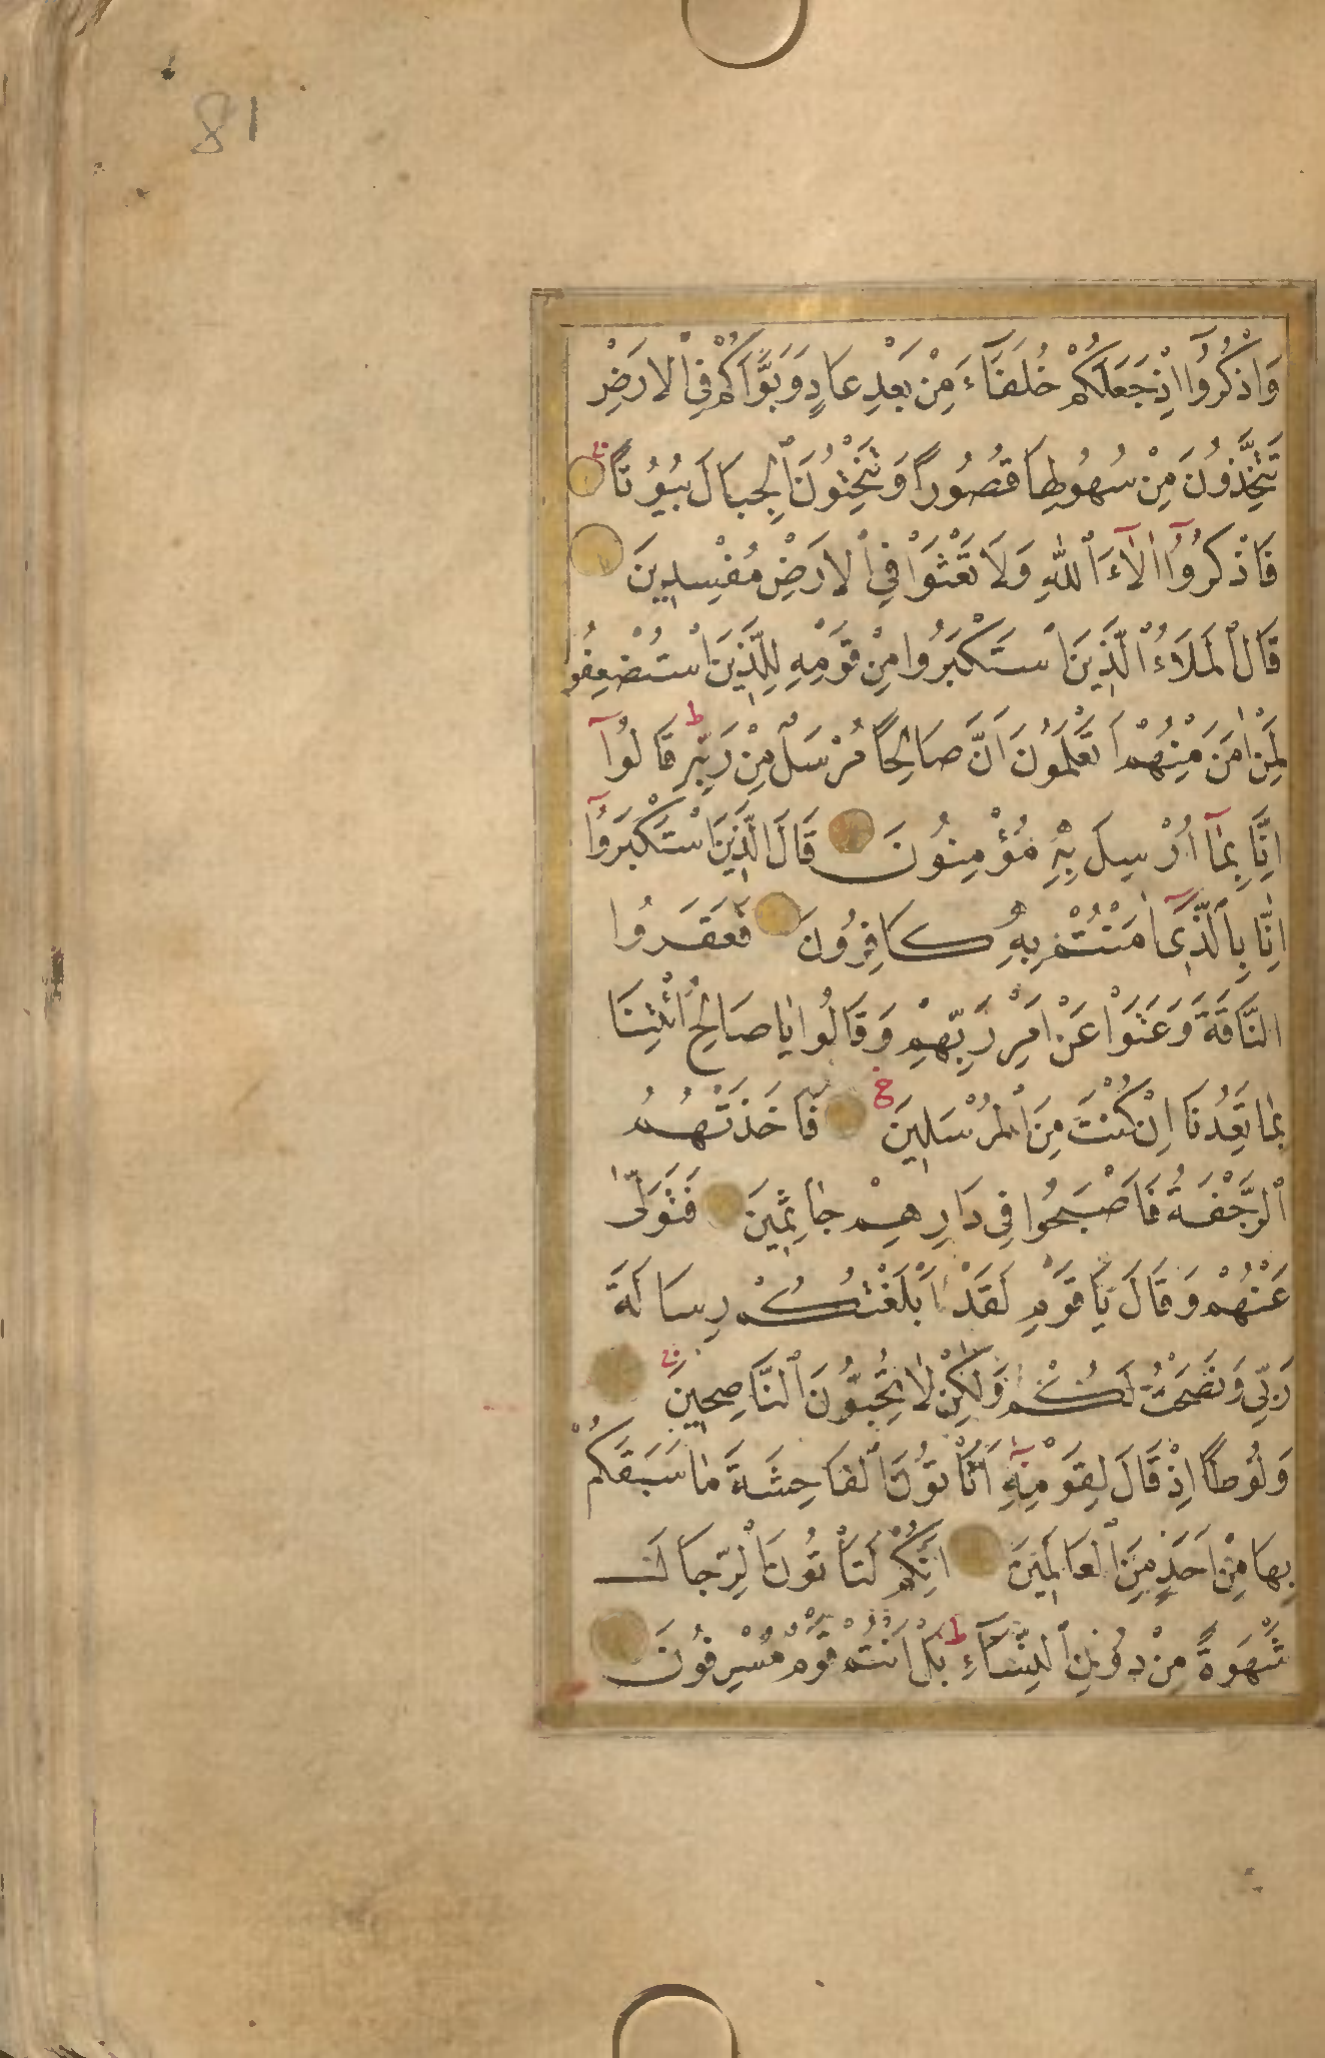 81
وَاذْكُرُوٓا اِذْ جَعَلَكُمْ خُلَفَٓاءَ مِنْ بَعْدِ عَادٍ وَبَوَّاَكُمْ فِي الْاَرْضِ
تَتَّخِذُونَ مِنْ سُهُولِهَا قُصُورًا وَتَنْحِتُونَ الْجِبَالَ بُيُوتًا
فَاذْكُرُوٓا اٰلَٓاءَ اللّٰهِ وَلَا تَعْثَوْا فِي الْاَرْضِ مُفْسِدِينَ
قَالَ الْمَلَاُ الَّذِينَ اسْتَكْبَرُوا مِنْ قَوْمِهِ لِلَّذِينَ اسْتُضْعِفُوا
لِمَنْ اٰمَنَ مِنْهُمْ اَتَعْلَمُونَ اَنَّ صَالِحًا مُرْسَلٌ مِنْ رَبِّهِ ط قَالُوٓا
اِنَّا بِمَٓا اُرْسِلَ بِهِ مُؤْمِنُونَ قَالَ الَّذِينَ اسْتَكْبَرُوٓا
اِنَّا بِالَّذِٓي اٰمَنْتُمْ بِهِ كَافِرُونَ فَعَقَرُوا
النَّاقَةَ وَعَتَوْا عَنْ اَمْرِ رَبِّهِمْ وَقَالُوا يَا صَالِحُ ائْتِنَا
بِمَا تَعِدُنَا اِنْ كُنْتَ مِنَ الْمُرْسَلِينَ فَاَخَذَتْهُمُ
الرَّجْفَةُ فَاَصْبَحُوا فِي دَارِهِمْ جَاثِمِينَ فَتَوَلّٰى
عَنْهُمْ وَقَالَ يَا قَوْمِ لَقَدْ اَبْلَغْتُكُمْ رِسَالَةَ
رَبِّي وَنَصَحْتُ لَكُمْ وَلٰكِنْ لَا تُحِبُّونَ النَّاصِحِينَ
وَلُوطًا اِذْ قَالَ لِقَوْمِهِٓ اَتَاْتُونَ الْفَاحِشَةَ مَا سَبَقَكُمْ
بِهَا مِنْ اَحَدٍ مِنَ الْعَالَمِينَ اِنَّكُمْ لَتَاْتُونَ الرِّجَالَ
شَهْوَةً مِنْ دُونِ النِّسَٓاءِ ط بَلْ اَنْتُمْ قَوْمٌ مُسْرِفُونَ